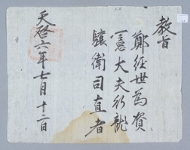 教旨
鄭經世為資
憲大夫行龍
驤衛司直者
天啓六年七月十三日